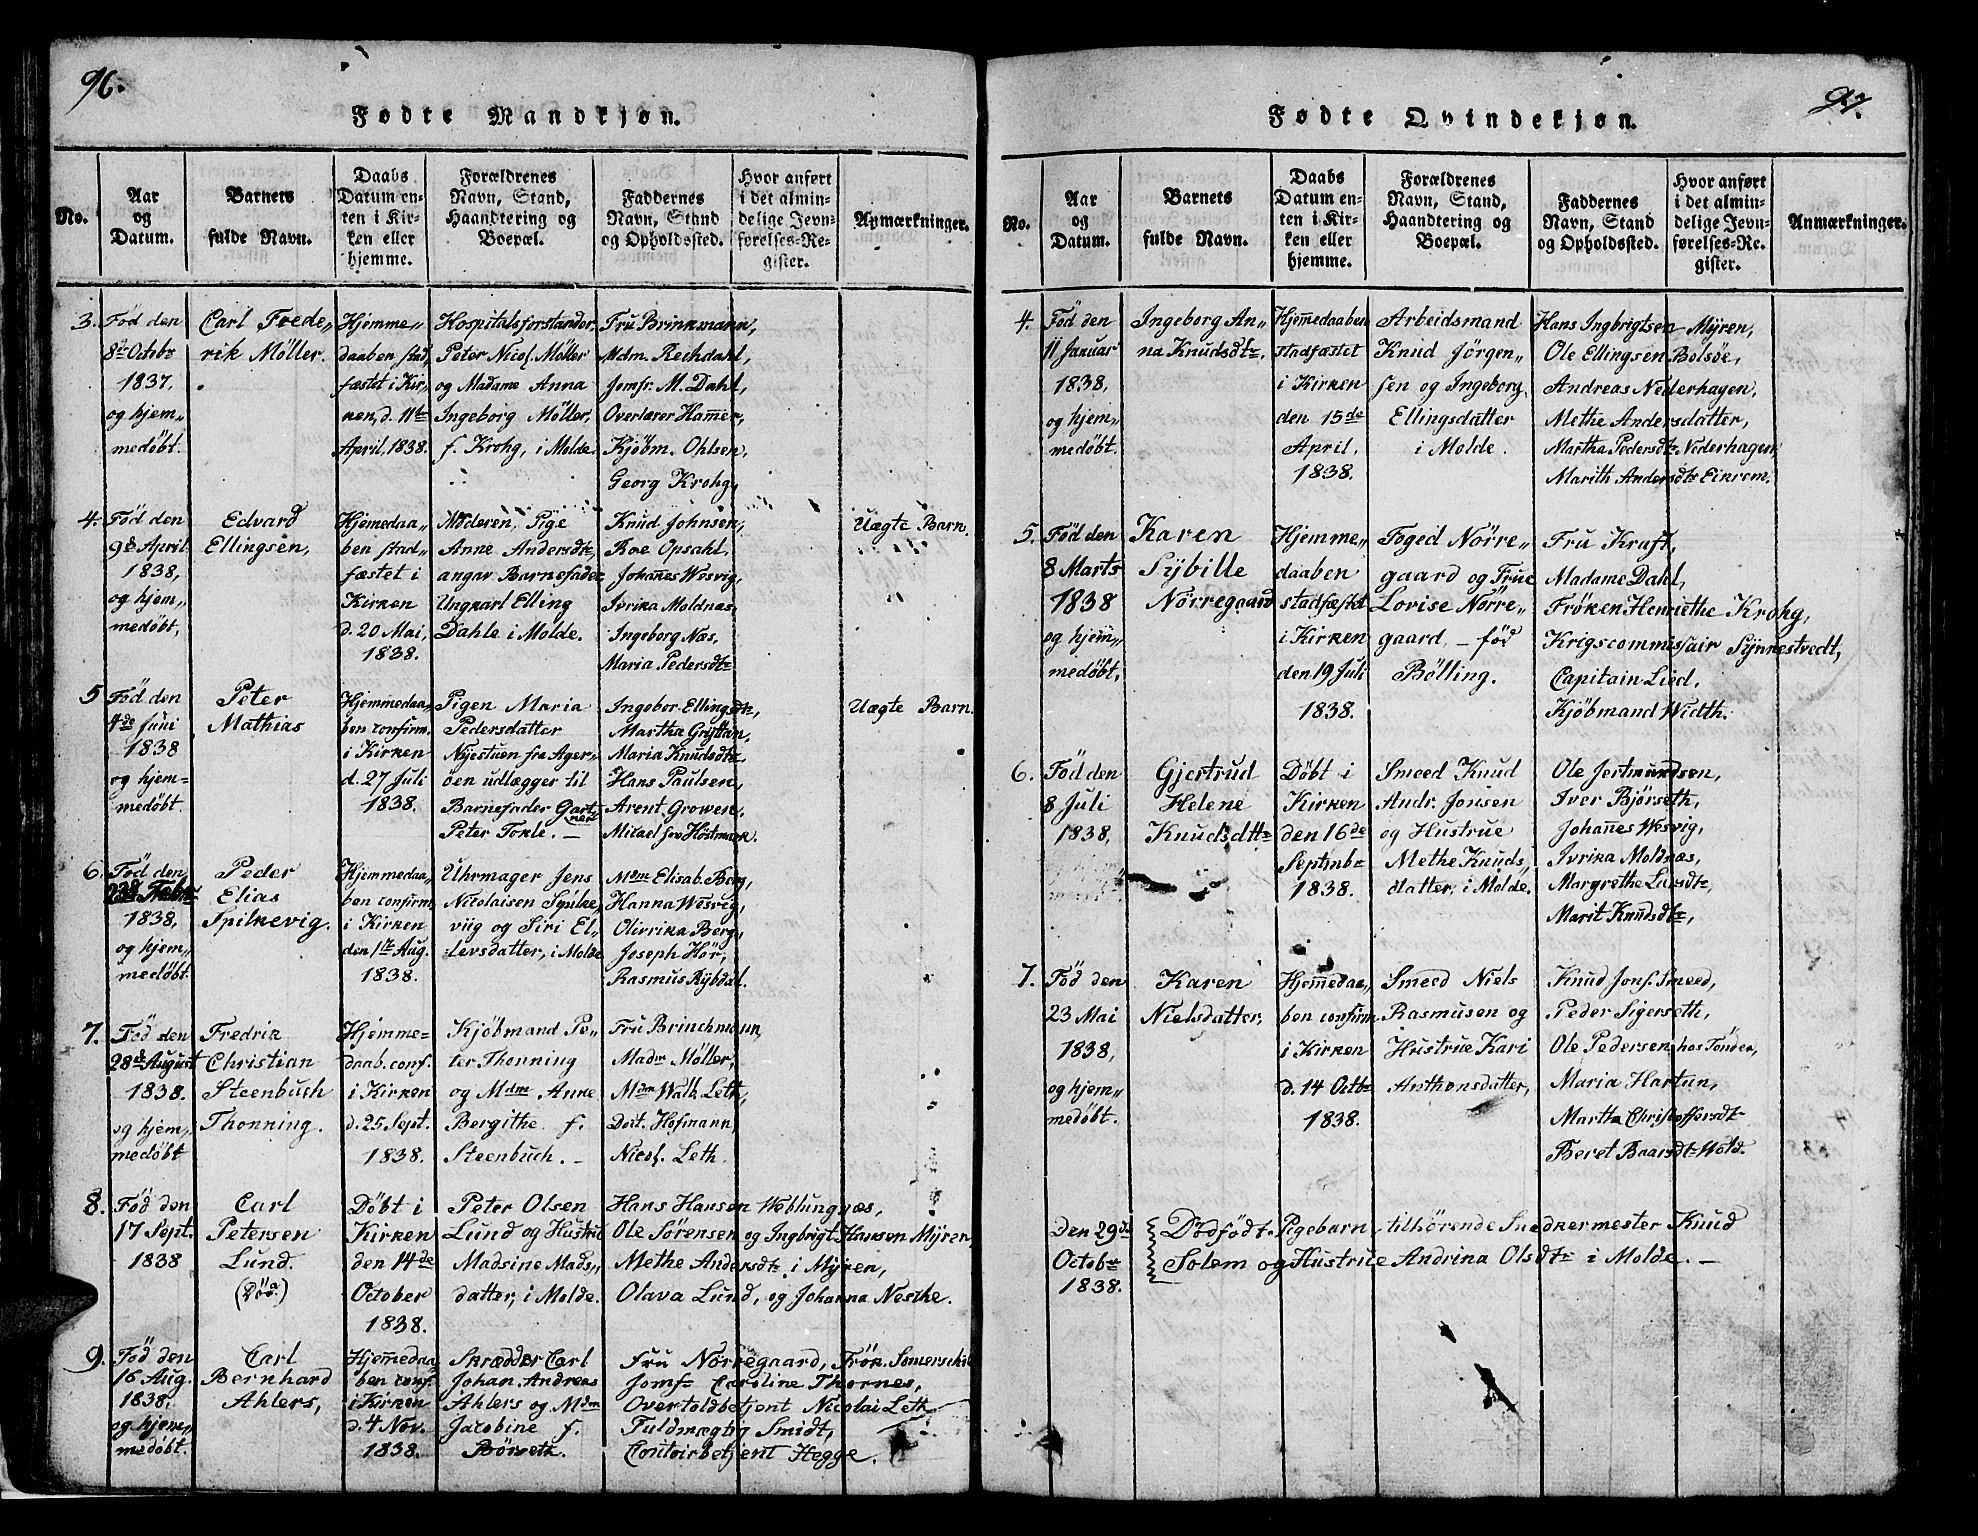 96.
Fødte Mandkjøn.
No.
Aar og Datum.
Barnets fulde Navn.
Daabs Datum enten i Kirken eller hjemme.
Forældrenes Navn, Stand, Haandtering og Boepæl.
Faddernes Navn, Stand og Opholdssted.
Hvor anført i det almindelige Jevnførelses-Register.
Anmærkninger.
3.
Fød den
8de Octobr
1837,
og hjem„
medøbt.
Carl Frede„
rik Møller.
Hjemme„
daaben stad„
fæstet i Kir„
ken, d. 11te
April, 1838.
Hospitalsforstander,
Peter Nicol. Møller
og Madame Anna
Ingeborg Møller,
f. Krohg, i Molde.
Fru Brinkmann,
Mdm. Rechdahl,
Jomfr. M. Dahl,
Overlærer Ham̄er,
Kjøbm. Ohlsen,
Georg Krohg,
4.
Fød den
9de April
1838,
og hjem„
medøbt,
Edvard
Ellingsen,
Hjem̄edaa„
ben stad„
fæstet i
Kirken
d. 20 Mai,
1838.
Moderen, Pige
Anne Andersdtr
angav Barnefader
Ungkarl Elling
Dahle i Molde.
Knud Johnsen,
Roe Opsahl,
Johan̄es Wosvig,
Ivrika Moldnæs,
Ingeborg Næs,
Maria Pedersdtr
Uægte Barn.
5
Fød den
4de Juni
1838
og hjem=
medøbt.
Peter
Mathias
Hjemmedaa„
ben confirm.
i Kirken
d. 27 Juli
1838.
Pigen Maria
Pedersdatter
Nyestuen fra Ager„
øen udlægger til
Barnefader Gart„
ner
Peter Tokle. —
Ingebor Ellingsdtr,
Martha Gristian,
Maria Knudsdtr
Hans Paulsen,
Arent Growen,
Mikael fra Høstmark.
Uægte Barn.
6.
Fød den
23de Febr
1838,
og hjem„
medøbt.
Peder
Elias
Spilkevig.
Hjemmedaa„
ben confirm
i Kirken
den 1ste Aug.
1838.
Uhrmager Jens
Nicolaisen Spilke„
viig og Siri El„
levsdatter, i Molde
Mdm Elisab. Berg,
Hanna Wosvig,
Olivrika Berg,
Joseph Hør,
Rasmus Rybdal.
7.
Fød den
28de August
1838.
og hjem„
medøbt
Fredrik
Christian
Steenbuch
Thonning.
Hjemme=
daab. conf.
i Kirken
d. 25 Sept.
1838.
Kjøbmand Pe„
ter Thonning
og Mdm Anne
Bergithe f.
Steenbuch. —
Fru Brinchmann,
Madm Møller,
Mdm Walb. Leth,
Dort. Hofmann,
Nicol. Leth.
8.
Fød den
17 Sept.
1838
Carl
Petersen
Lund.
(Død)
Døbt i
Kirken
den 14de
October
1838.
Peter Olsen
Lund og Hustru
Madsine Mads„
datter, i Molde.
Hans Hansen Weblungnæs,
Ole Sørensen og Ingbrigt Hansen Myren,
Methe Andersdtr i Myren,
Olava Lund, og Johanna Nesthe.
9.
Fød den
16 Aug.
1838,
og hjem„
medøbt.
Carl
Bernhard
Ahlers,
Hjem̄edaa„
ben conf.
i Kirken
d. 4 Nov.
1838.
Skrædder Carl
Johan Andreas
Ahlers og Mdm
Jacobine f.
Børseth.
Fru Nørregaard, Frøk. Som̄erschil
Jomfr Caroline Thornes,
Overtoldbetjent Nicolai Leth
Fuldmægtig Smidt,
Contoirbetjent Hegge.
97.
Fødte Qvindekjøn.
No.
Aar og Datum.
Barnets fulde Navn.
Daabs Datum enten i Kirken eller hjemme.
Forældrenes Navn, Stand, Haandtering og Boepæl.
Faddernes Navn, Stand og Opholdssted.
Hvor anført i det almindelige Jevnførelses-Register.
Anmærkninger.
4.
Fød den
11 Januar
1838,
og hjem„
medøbt.
Ingeborg An„
na Knudsdtr.
Hjem̄edaaben
stadfæstet
i Kirken
den 15de
April,
1838.
Arbeidsmand
Knud Jörgen„
sen og Ingeborg
Ellingsdatter
i Molde.
Hans Ingbrigtsen Myren,
Ole Ellingsen Bolsøe,
Andreas Nederhagen,
Methe Andersdatter,
Martha Pedersdtr Nederhagen,
Marith Andersdtr Eikrem.
5.
Fød den
8 Marts
1838
og hjem„
medøbt,
Karen
Sybille
Nörregaard
Hjemme„
daaben
stadfæstet
i Kirken
den 19 Juli
1838.
Foged Nörre„
gaard og Frue
Lovise Nörre„
gaard, — fød
Bölling.
Fru Kraft,
Madame Dahl,
Fröken Henriethe Krohg,
Krigscommissair Synnestvedt,
Capitain Lied,
Kjöbmand Width.
6.
Fød den
8 Juli
1838,
Gjertrud
Helene
Knudsdtr.
Døbt i
Kirken
den 16de
Septmbr
1838.
Smeed Knud
Andr. Jonsen
og Hustrue
Methe Knuds„
datter, i Molde.
Ole Jertmundsen,
Iver Bjørseth,
Johan̄es Wosvig,
Ivrika Moldnæs,
Margrethe Larsdtr,
Marit Knudsdtr,
7.
Fød den
23 Mai
1838,
og hjem„
medøbt.
Karen
Nielsdatter,
Hjem̄edaa„
ben confirm
i Kirken
d. 14 Octbr
1838.
Smeed Niels
Rasmusen og
Hustrue Kari
Anthonsdatter,
Knud Jons. Smeed,
Peder Sigerseth,
Ole Pedersen hos Tönder,
Maria Hartun,
Martha Christoffersdtr
Beret Baarsdtr Wold.
Den 29de
Octobr
1838.
Dødfødt Pigebarn tilhørende Snedkermester Knud
Solem og Hustrue Andrina Olsdtr i Molde. —